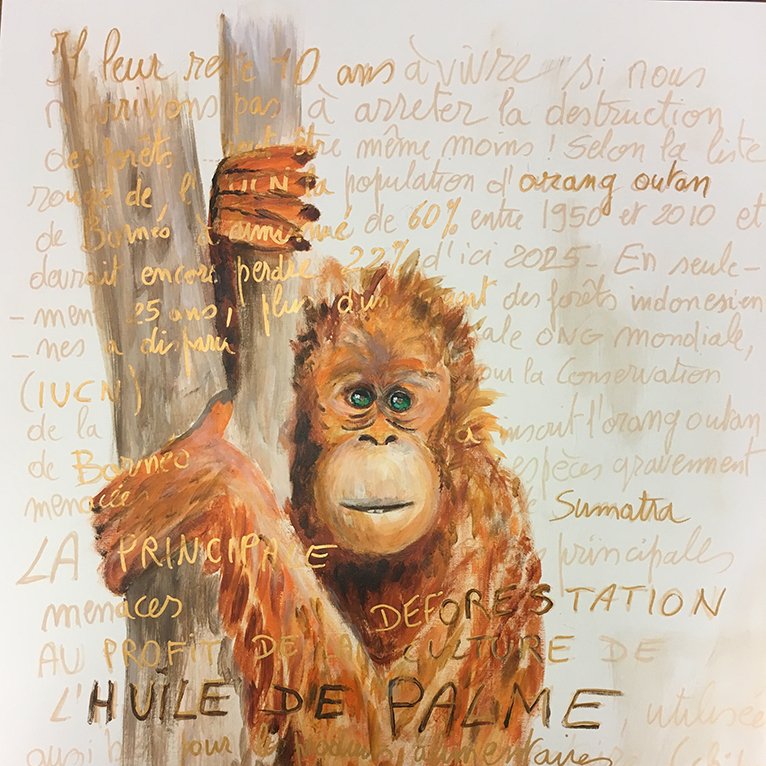 Il leur reste 10 ans à vivre si nous
n'arrivons pas à arreter la destruction
des forêts peut être même moins ! Selon la liste
rouge de l'IUCN la population d'orang outan
de Bornéo a diminué de 60% entre 1950 et 2010 et
devrait encore perdre 22% d'ici 2025 - En seule-
-ment 25 ans, plus d'un quart des forêts indonesien
-nes a disparu ale ONG mondiale,
(IUCN) pour la Conservation
de la a inscrit l'orang outan
de Borneo espèces gravement
menacées Sumatra
LA PRINCIPALE principales
menaces DEFORESTATION
AU PROFIT DE LA CULTURE DE
L'HUILE DE PALME, utilisée
aussi bien pour les produits alimentaires